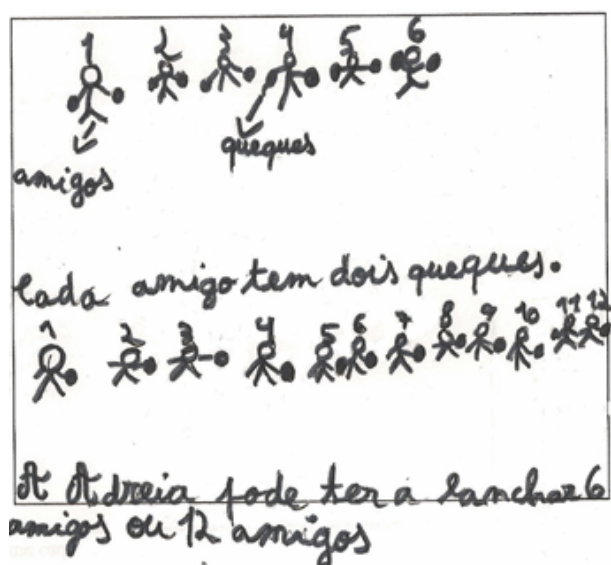 1 2 3 4 5 6
queques
amigos
Cada amigo tem dois queques.
1 2 3 4 5 6 7 8 9 10 11 12
A Adreia pode ter a lanchar 6
amigos ou 12 amigos